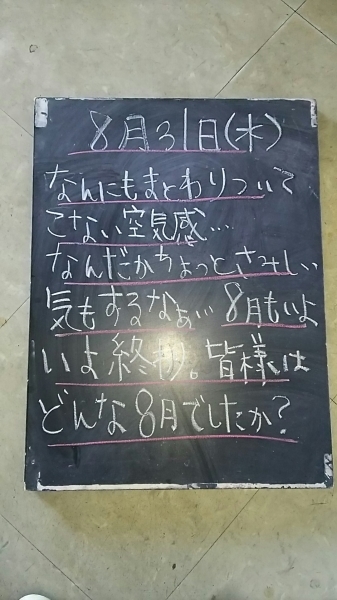 8月31日(水)
なんにもまとわりついて
こない空気感…
なんだかちょっと、さみしい
気もするなぁ… 8月もいよ
いよ終わり。皆様は
どんな8月でしたか?